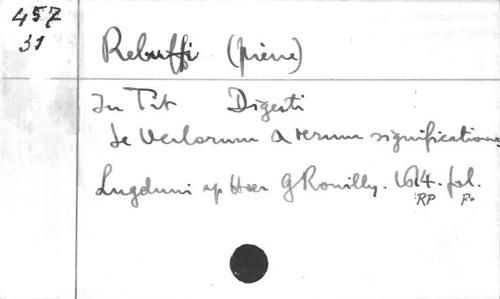 457
31
Rebuffi (pierre)
In Tit Digesti
de Verborum & rerum significatione
Lugduni ap Haer G Rouilly. 1614. fol.
RP Fo